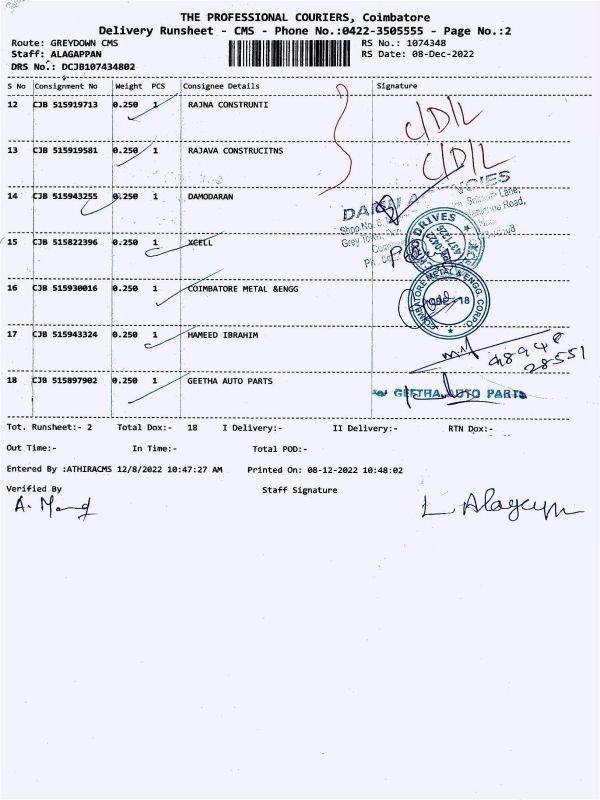 THE PROFESSIONAL COURIERS, Coimbatore
Delivery Runsheet - CMS - Phone No.:0422-3505555 - Page No.:2
Route: GREYDOWN CMS RS No.: 1074348
Staff: ALAGAPPAN RS Date: 08-Dec-2022
DRS No.: DCJB107434802
S No Consignment No Weight PCS Consignee Details Signature
12 CJB 515919713 0.250 1 RAJNA CONSTRUNTI C/D/L
13 CJB 515919581 0.250 1 RAJAVA CONSTRUCITNS C/D/L
14 CJB 515943255 0.250 1 DAMODARAN
Shop No. 6,
Grey Town,
15 CJB 515822396 0.250 1 XCELL
DRIVES
16 CJB 515930016 0.250 1 COIMBATORE METAL &ENGG
COIMBATORE METAL & ENGG. CORPO.
17 CJB 515943324 0.250 1 HAMEED IBRAHIM
28551
18 CJB 515897902 0.250 1 GEETHA AUTO PARTS
GEETHA AUTO PARTS
Tot. Runsheet:- 2 Total Dox:- 18 I Delivery:- II Delivery:- RTN Dox:-
Out Time:- In Time:- Total POD:-
Entered By :ATHIRACMS 12/8/2022 10:47:27 AM Printed On: 08-12-2022 10:48:02
Verified By Staff Signature
L. Alagappn